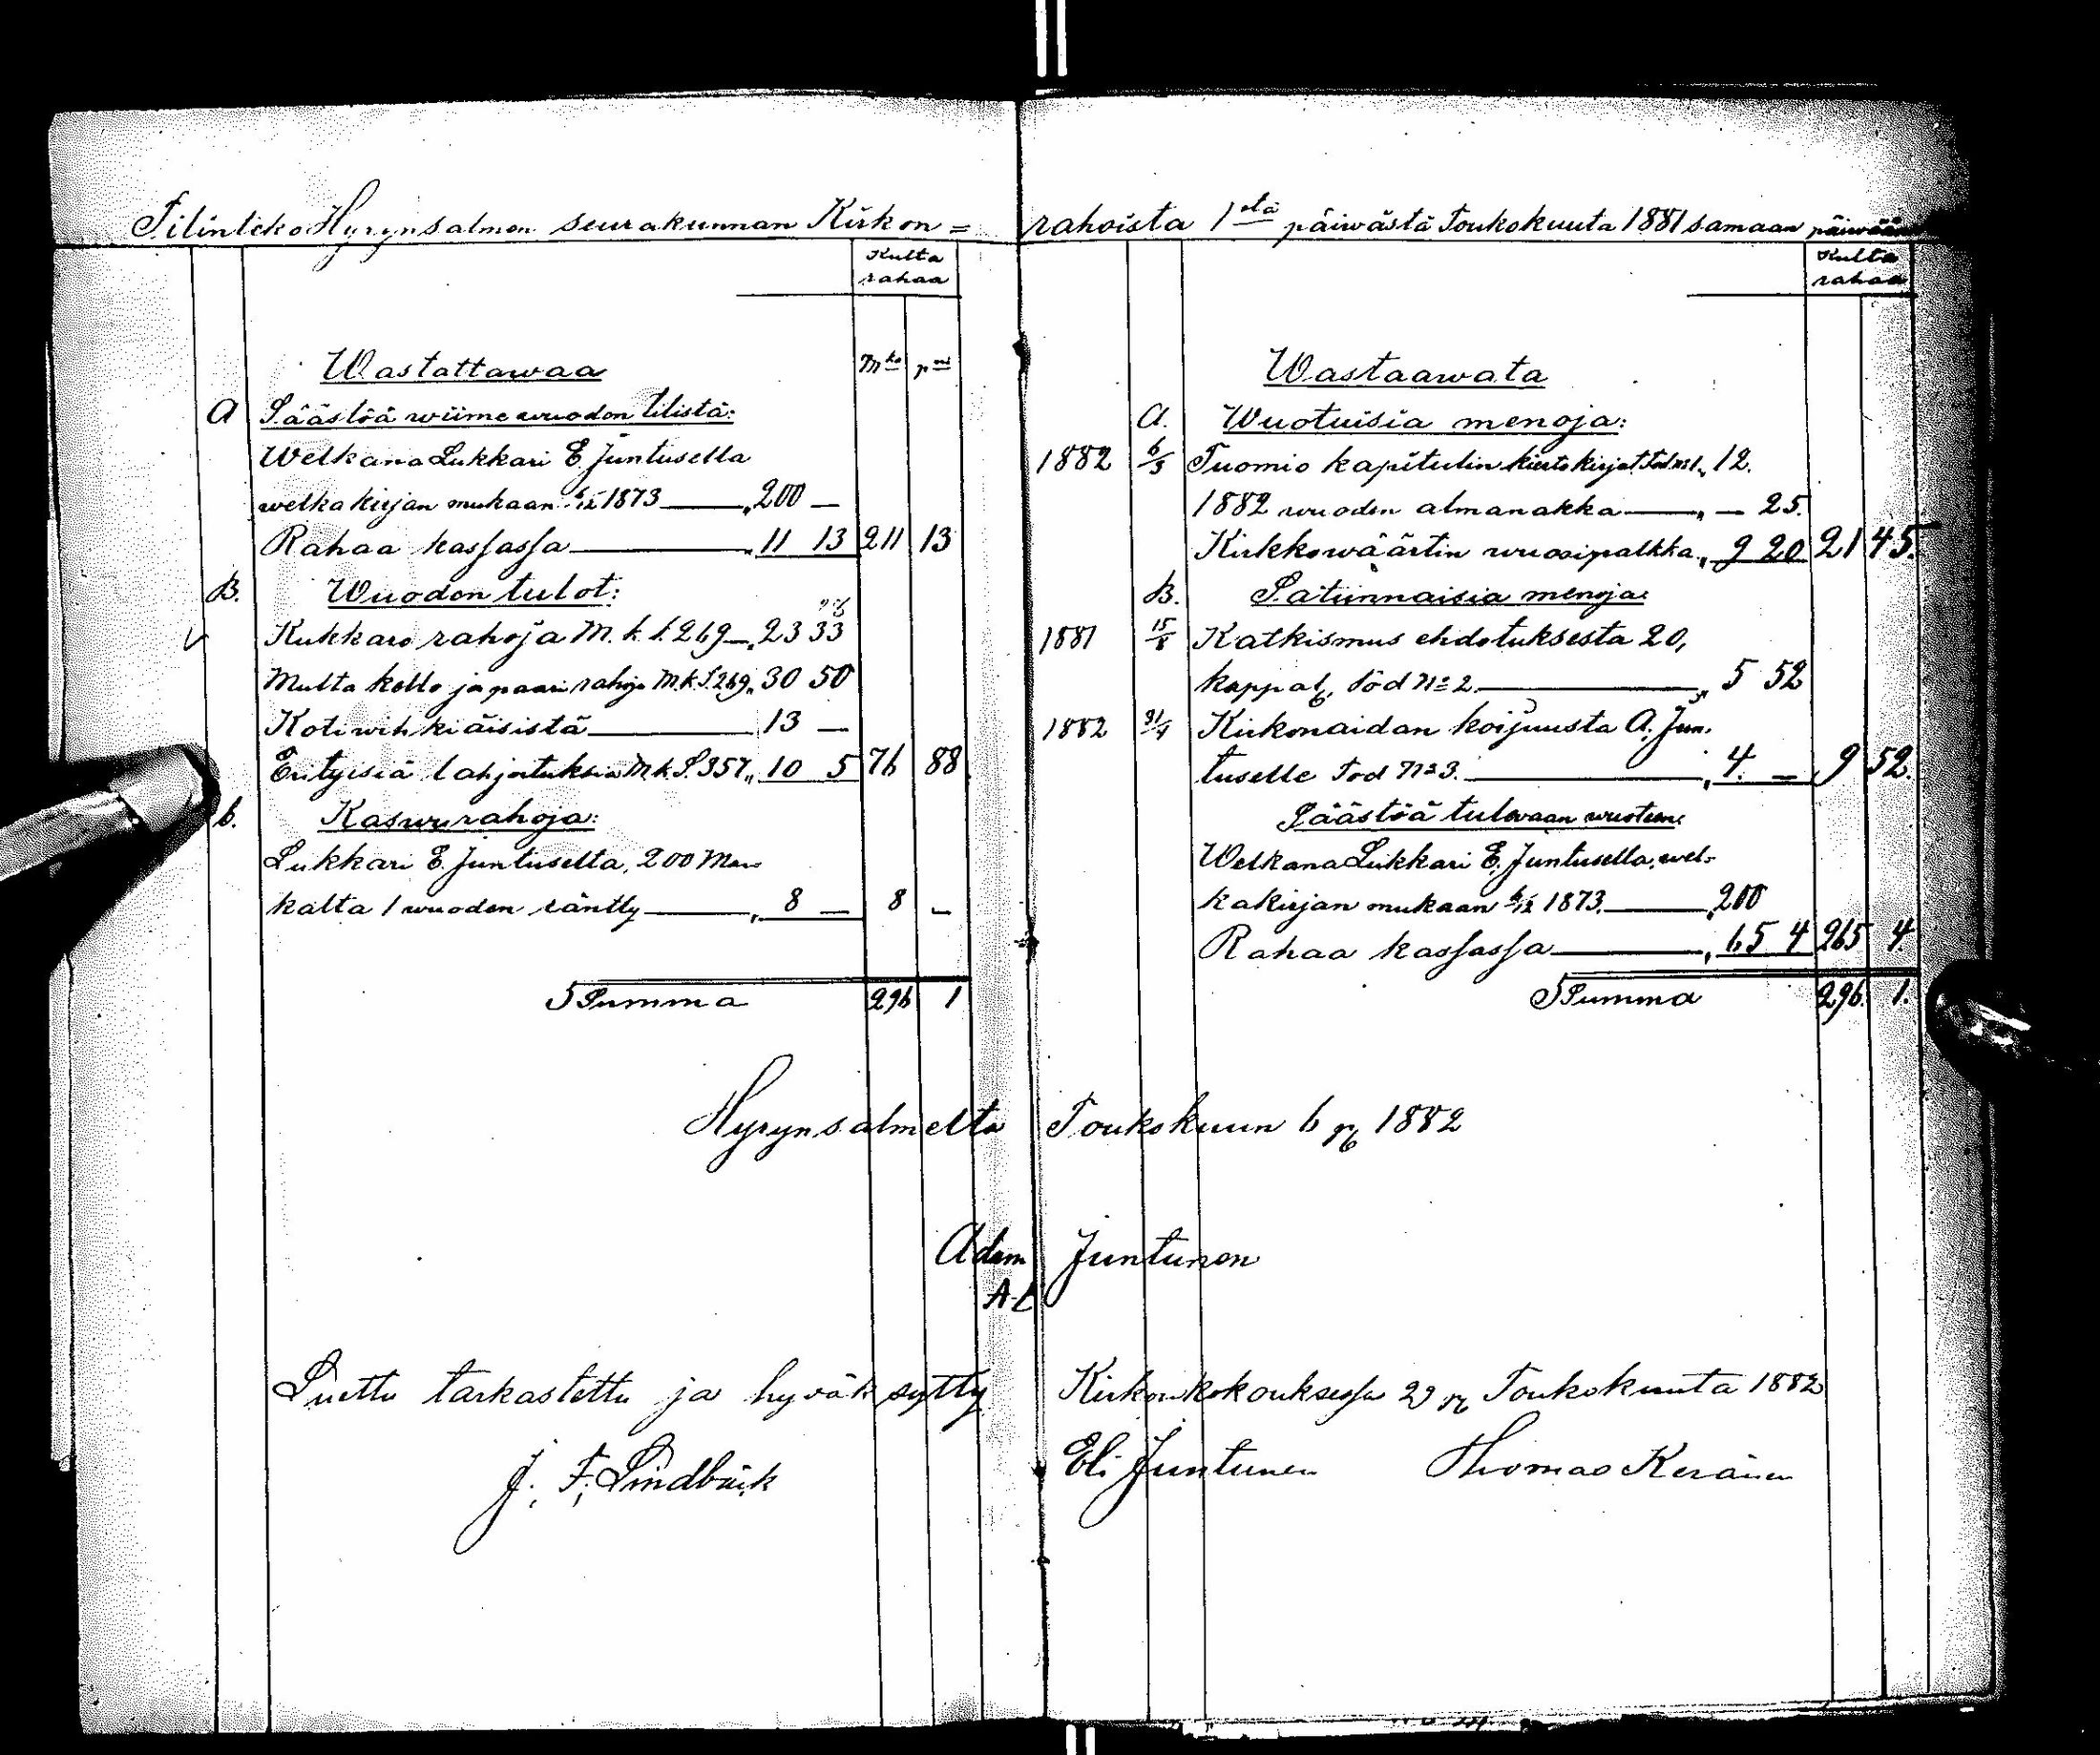 Tilinteko Hyrynsalmen seurakunnan Kirkon=
Kulta
rahaa
Wastattawaa Mka pni
A Säästöä wiime wuoden tilistä:
Welkana Lukkari E. Juntusella
welkakirjan mukaan 6/12 1873 — „ 200 —
Rahaa kassassa — „ 11 13 211 13
B. Wuoden tulot:
Kukkaro rahoja M. k. S. 269 — „ 23 33
Multa kello ja paari rahoja M. k. S. 269 „ 30 50
Kotiwihkiäisistä — 13 —
Erityisiä lahjoituksia M. k. S. 357 „ 10 5 76 88
b. Kaswurahoja:
Lukkari E. Juntuselta, 200 Mar-
kalta 1 wuoden ränтty — „ 8 — 8 —
Summa 296 1
rahoista 1stä päiwästä Toukokuuta 1881 samaan päiwään
Kulta
rahaa
Wastaawata
A. Wuotuisia menoja:
1882 6/3 Tuomio kapitulin kiertokirjat Tod. No 1 „ 12.
1882 wuoden almanakka — „ — 25.
Kirkkowäärtin wuosipalkka „ 9 20 21 45.
B. Satunnaisia menoja:
1881 15/8 Katkismus ehdotuksesta 20,
kappal. Tod No 2 — „ 5 52
1882 31/4 Kirkonaidan korjuusta A. Jun-
tuselle Tod No 3. — „ 4. — 9 52.
Säästöä tulewaan wuoteen:
Welkana Lukkari E. Juntusella, wel-
kakirjan mukaan 6/12 1873. — „ 200
Rahaa kassassa — „ 65 4 265 4.
Summa 296. 1.
Hyrynsalmelta Toukokuun 6 p. 1882
Adam Juntunen
A. L
Luettu tarkastettu ja hyväksytty Kirkonkokouksessa 29 p. Toukokuuta 1882
J. F. Lindbäck Eli Juntunen Thomas Keränen